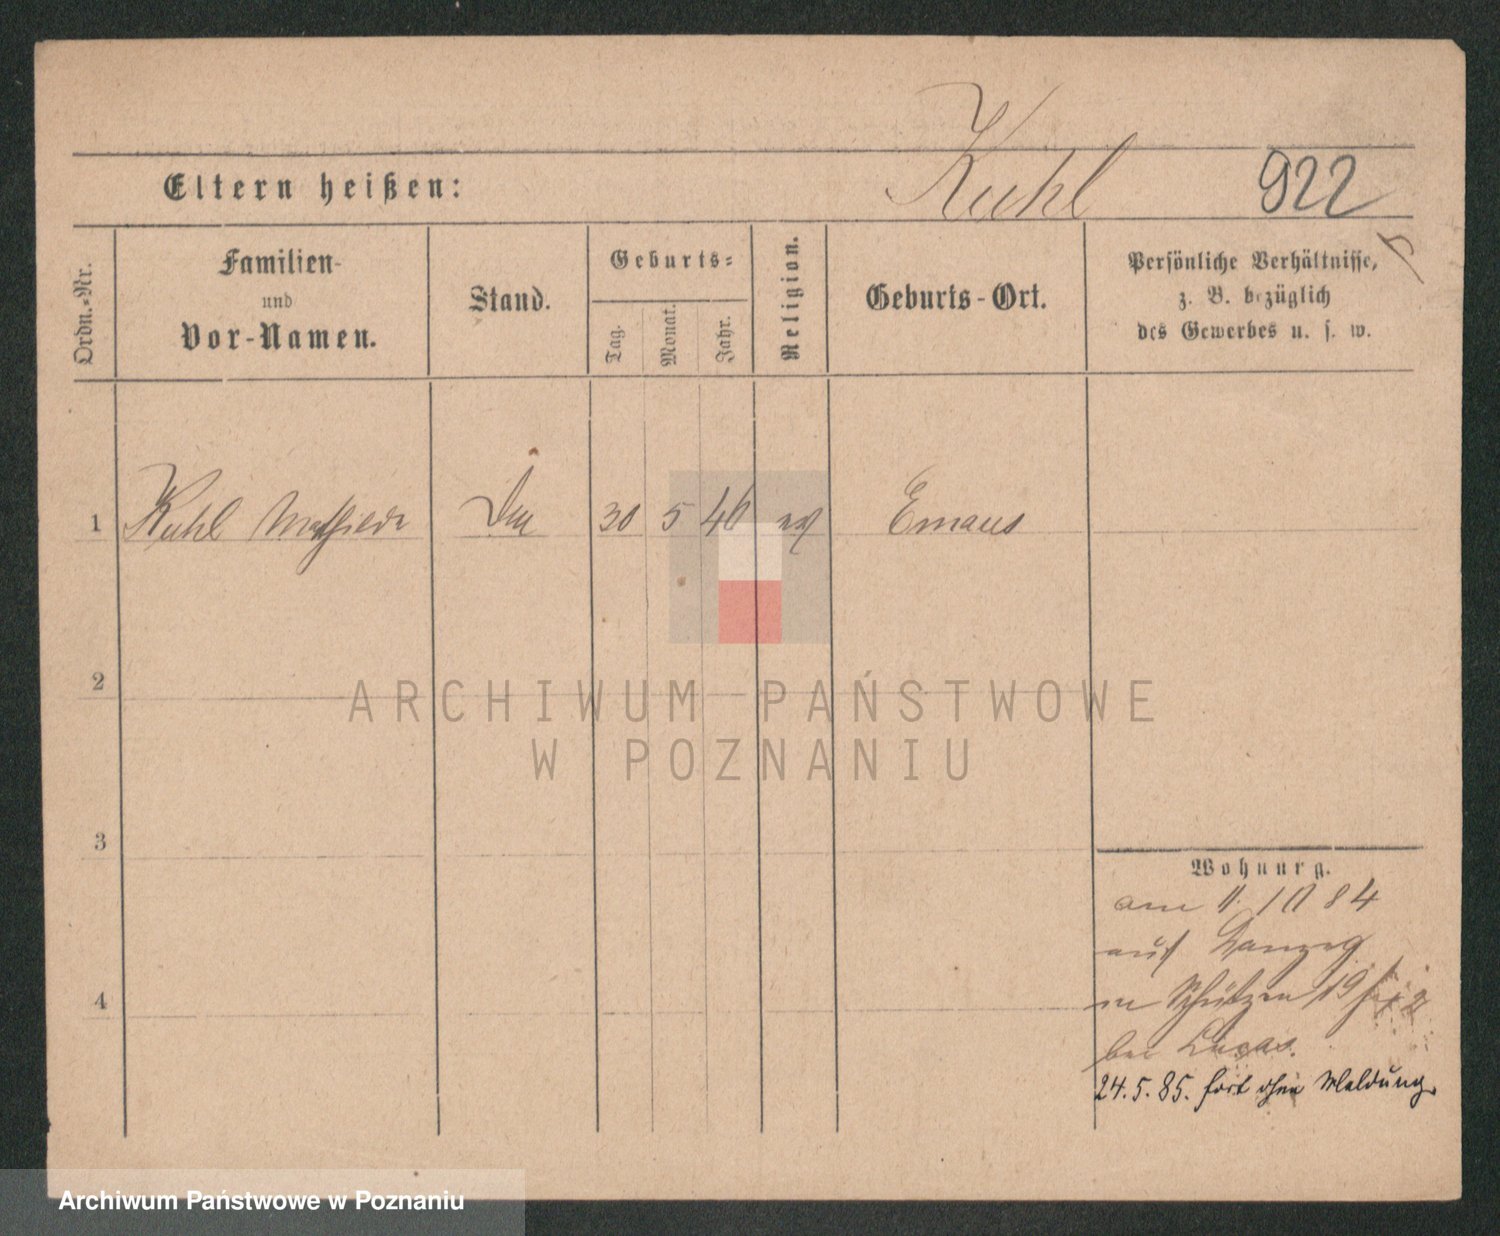 Kuhl 922
Eltern heißen:
Ordn.-Nr.
Familien-
und
Vor-Namen.
Stand.
Geburts-
Tag.
Monat.
Jahr.
Religion.
Geburts-Ort.
Persönliche Verhältnisse,
z. B. bezüglich
des Gewerbes u. s. w.
1 Kuhl Mathilde 30 5 46 ev Emaus
2
3
4
Wohnung.
am 11. 10 84
aus Danzig
in Schützen 19
bei Lucas.
24. 5. 85. fort ohne Meldung.
ARCHIWUM PAŃSTWOWE
W POZNANIU
Archiwum Państwowe w Poznaniu